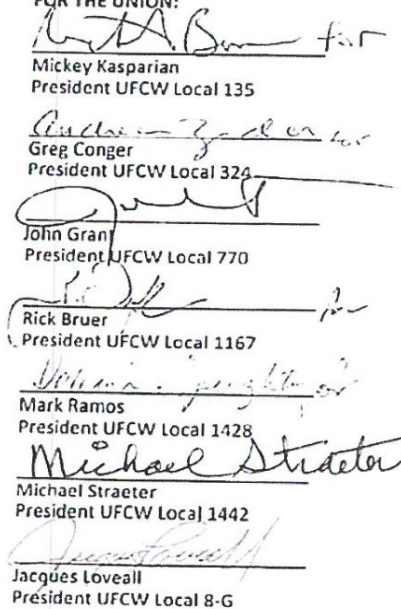 FOR THE UNION:
for
Mickey Kasparian
President UFCW Local 135
for
Greg Conger
President UFCW Local 324
John Grant
President UFCW Local 770
Rick Bruer
President UFCW Local 1167
for
Mark Ramos
President UFCW Local 1428
Michael Straeter
Michael Straeter
President UFCW Local 1442
Jacques Loveall
Jacques Loveall
President UFCW Local 8-G